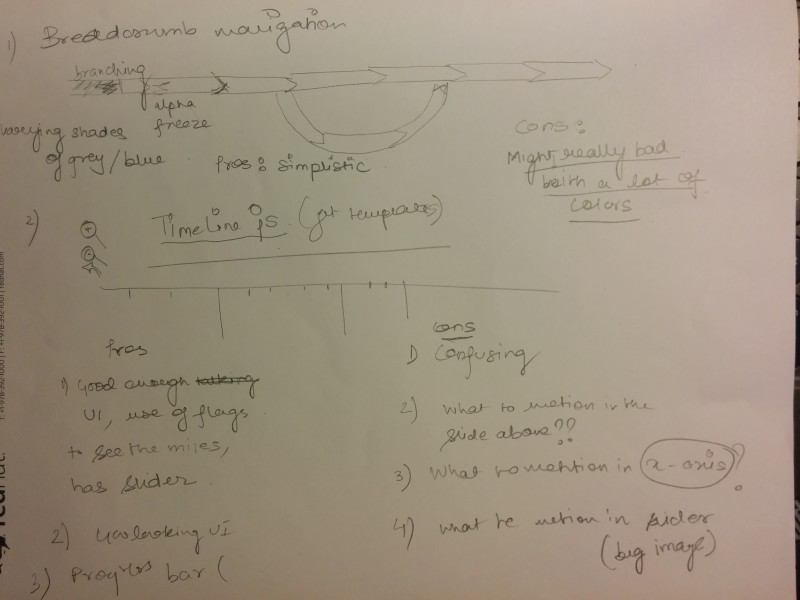 1) Breadcrumb navigation
branching
alpha
freeze
varying shades
of grey/blue
Pros: simplistic
Cons:
Might really bad
with a lot of
colors
2) TimeLine JS (get templates)
Pros
1) Good enough
UI, use of flags
to see the miles,
has slider
2) Good looking UI
3) Progress bar (
Cons
1) Confusing
2) What to metion in the
slide above??
3) What to mention in x-axis?
4) what to metion in slider
(big image)
T: +1-978-392-1000 | redhat.com
redhat.